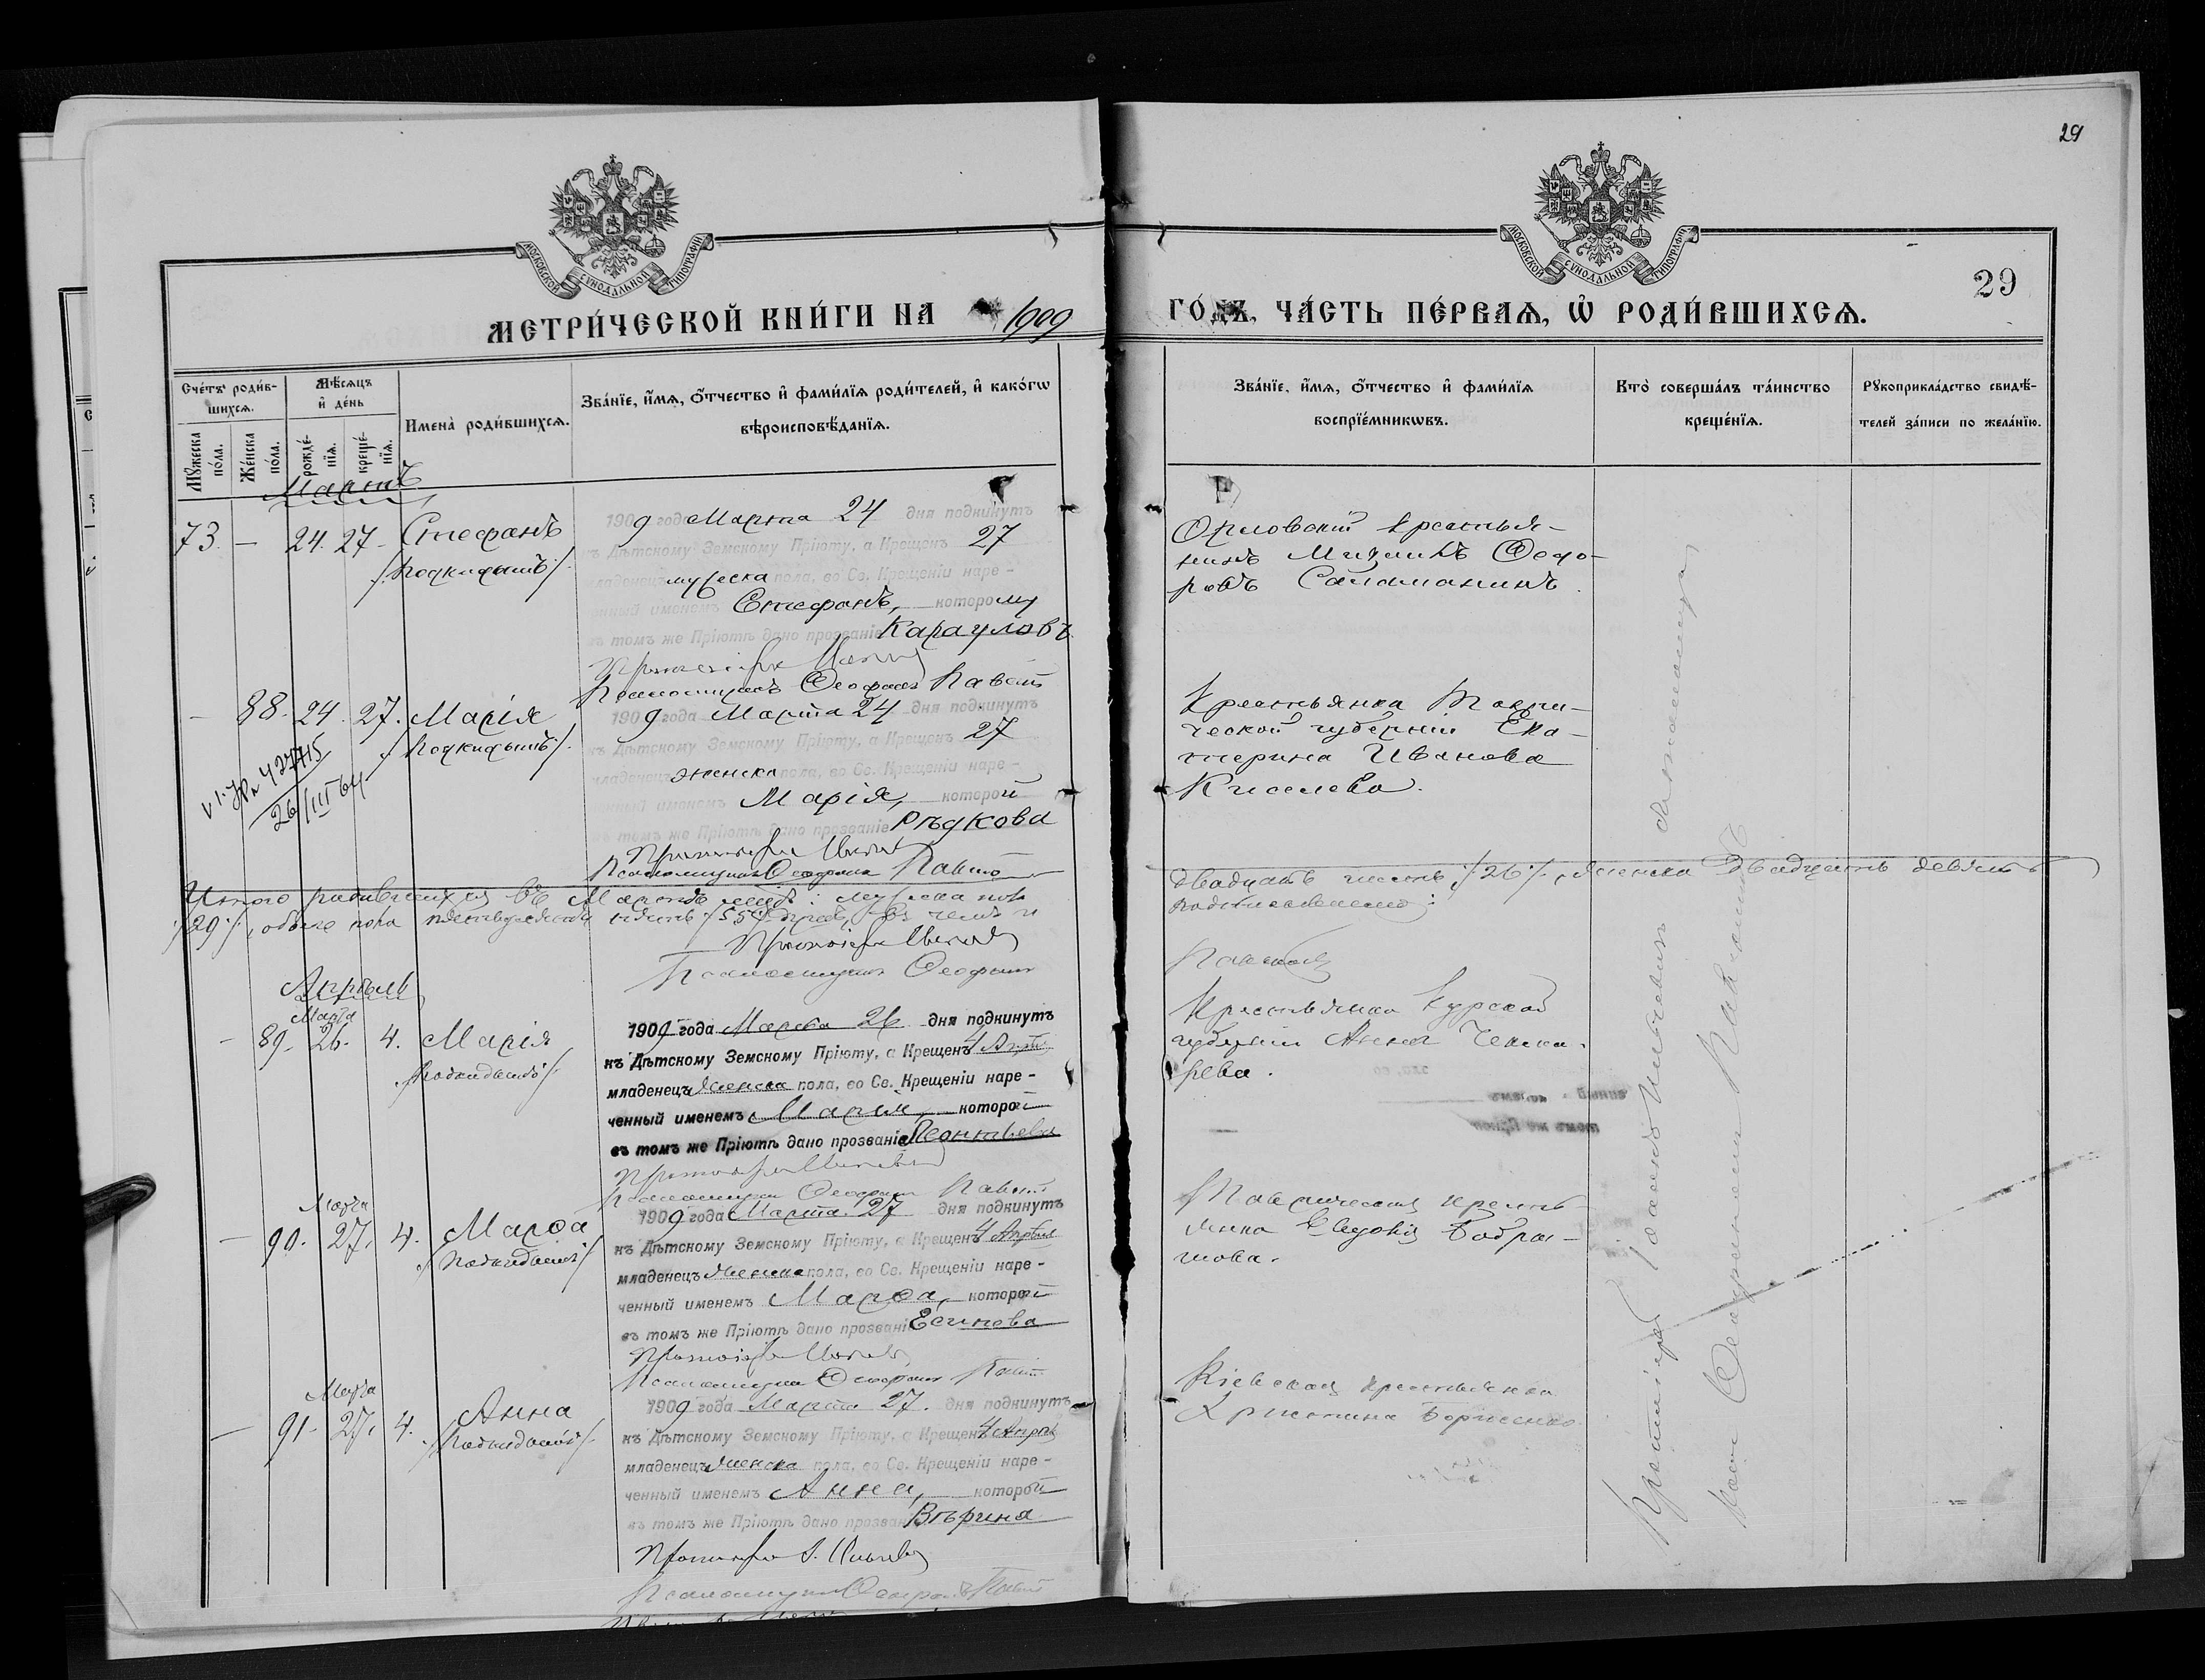 29
МОСКОВСКОЙ СѴНОДАЛЬНОЙ ТИПОГРАФІИ
МОСКОВСКОЙ СѴНОДАЛЬНОЙ ТИПОГРАФІИ
29
МЕТРИ́ЧЕСКОЙ КНИ́ГИ НА 1909 ГО́ДЪ, ЧА́СТЬ ПЕ́РВАѦ, Ѡ҆ РОДИ́ВШИХСѦ.
Сче́тъ роди́в-
шихсѧ.
Мꙋ́жеска по́ла.
Же́нска по́ла.
Мѣ́сѧцъ
и҆ де́нь
рожде́-
нїѧ.
креще́-
нїѧ.
Имена̀ роди́вшихсѧ.
Зва́нїе, и҆́мѧ, ѻ҆́тчество и҆ фами́лїѧ роди́телей, и҆ како́гѡ
вѣроисповѣ́данїѧ.
Зва́нїе, и҆́мѧ, ѻ҆́тчество и҆ фами́лїѧ
воспрїе́мникѡвъ.
Кто̀ соверша́лъ та́инство
креще́нїѧ.
Рꙋкоприкла́дство свидѣ́-
телей за́писи по жела́нїю.
Мартъ
73. — 24. 27. Стефанъ
/:Подкидышъ:/
1909 года Марта 24 дня подкинутъ
къ Дѣтскому Земскому Пріюту, а Крещенъ 27
младенецъ мужеска пола, во Св. Крещеніи наре-
ченный именемъ Стефанъ, которому
въ томъ же Пріютѣ дано прозваніе Карауловъ
Протоіерей
Псаломщикъ Ѳеофанъ
Орловскій крестья-
нинъ Ѳедо-
ровъ
— 88. 24. 27. Марія
/:Подкидышъ:/
26/III 64
1909 года Марта 24 дня подкинутъ
къ Дѣтскому Земскому Пріюту, а Крещенъ 27
младенецъ женска пола, во Св. Крещеніи наре-
ченный именемъ Марія, которой
въ томъ же Пріютѣ дано прозваніе Рѣдкова
Протоіерей
Псаломщикъ Ѳеофанъ
Крестьянка Таври-
ческой губерніи Ека-
терина Иванова
Киселева.
Итого родившихся въ Мартѣ мцѣ: мужска пола двадцать шесть /:26:/, женска двадцать девять
/:29:/, обоего пола пятьдесятъ пять /:55:/ въ чемъ и подписуемся:
Протоіерей
Псаломщикъ Ѳеофанъ
Апрѣль
Марта
— 89. 26. 4. Марія
/:Подкидышъ:/
1909 года Марта 26 дня подкинутъ
къ Дѣтскому Земскому Пріюту, а Крещенъ 4 Апрѣл
младенецъ женска пола, во Св. Крещеніи наре-
ченный именемъ Марія, которой
въ томъ же Пріютѣ дано прозваніе Леонтьева
Протоіерей
Псаломщикъ Ѳеофанъ
Крестьянка Курской
губерніи Анна
Марта
— 90. 27. 4. Марѳа
/:Подкидышъ:/
1909 года Марта 27 дня подкинутъ
къ Дѣтскому Земскому Пріюту, а Крещенъ 4 Апрѣл
младенецъ женска пола, во Св. Крещеніи наре-
ченный именемъ Марѳа, которой
въ томъ же Пріютѣ дано прозваніе Есипова
Протоіерей
Псаломщикъ Ѳеофанъ
Таврическая кресть-
янка
Марта
— 91. 27. 4. Анна
/:Подкидышъ:/
1909 года Марта 27. дня подкинутъ
къ Дѣтскому Земскому Пріюту, а Крещенъ 4 Апрѣл
младенецъ женска пола, во Св. Крещеніи наре-
ченный именемъ Анна, которой
въ томъ же Пріютѣ дано прозваніе Вѣрина
Протоіерей
Псаломщикъ Ѳеофанъ
Кіевская крестьянка
Христина Борисенко
Протоіерей Іоаннъ